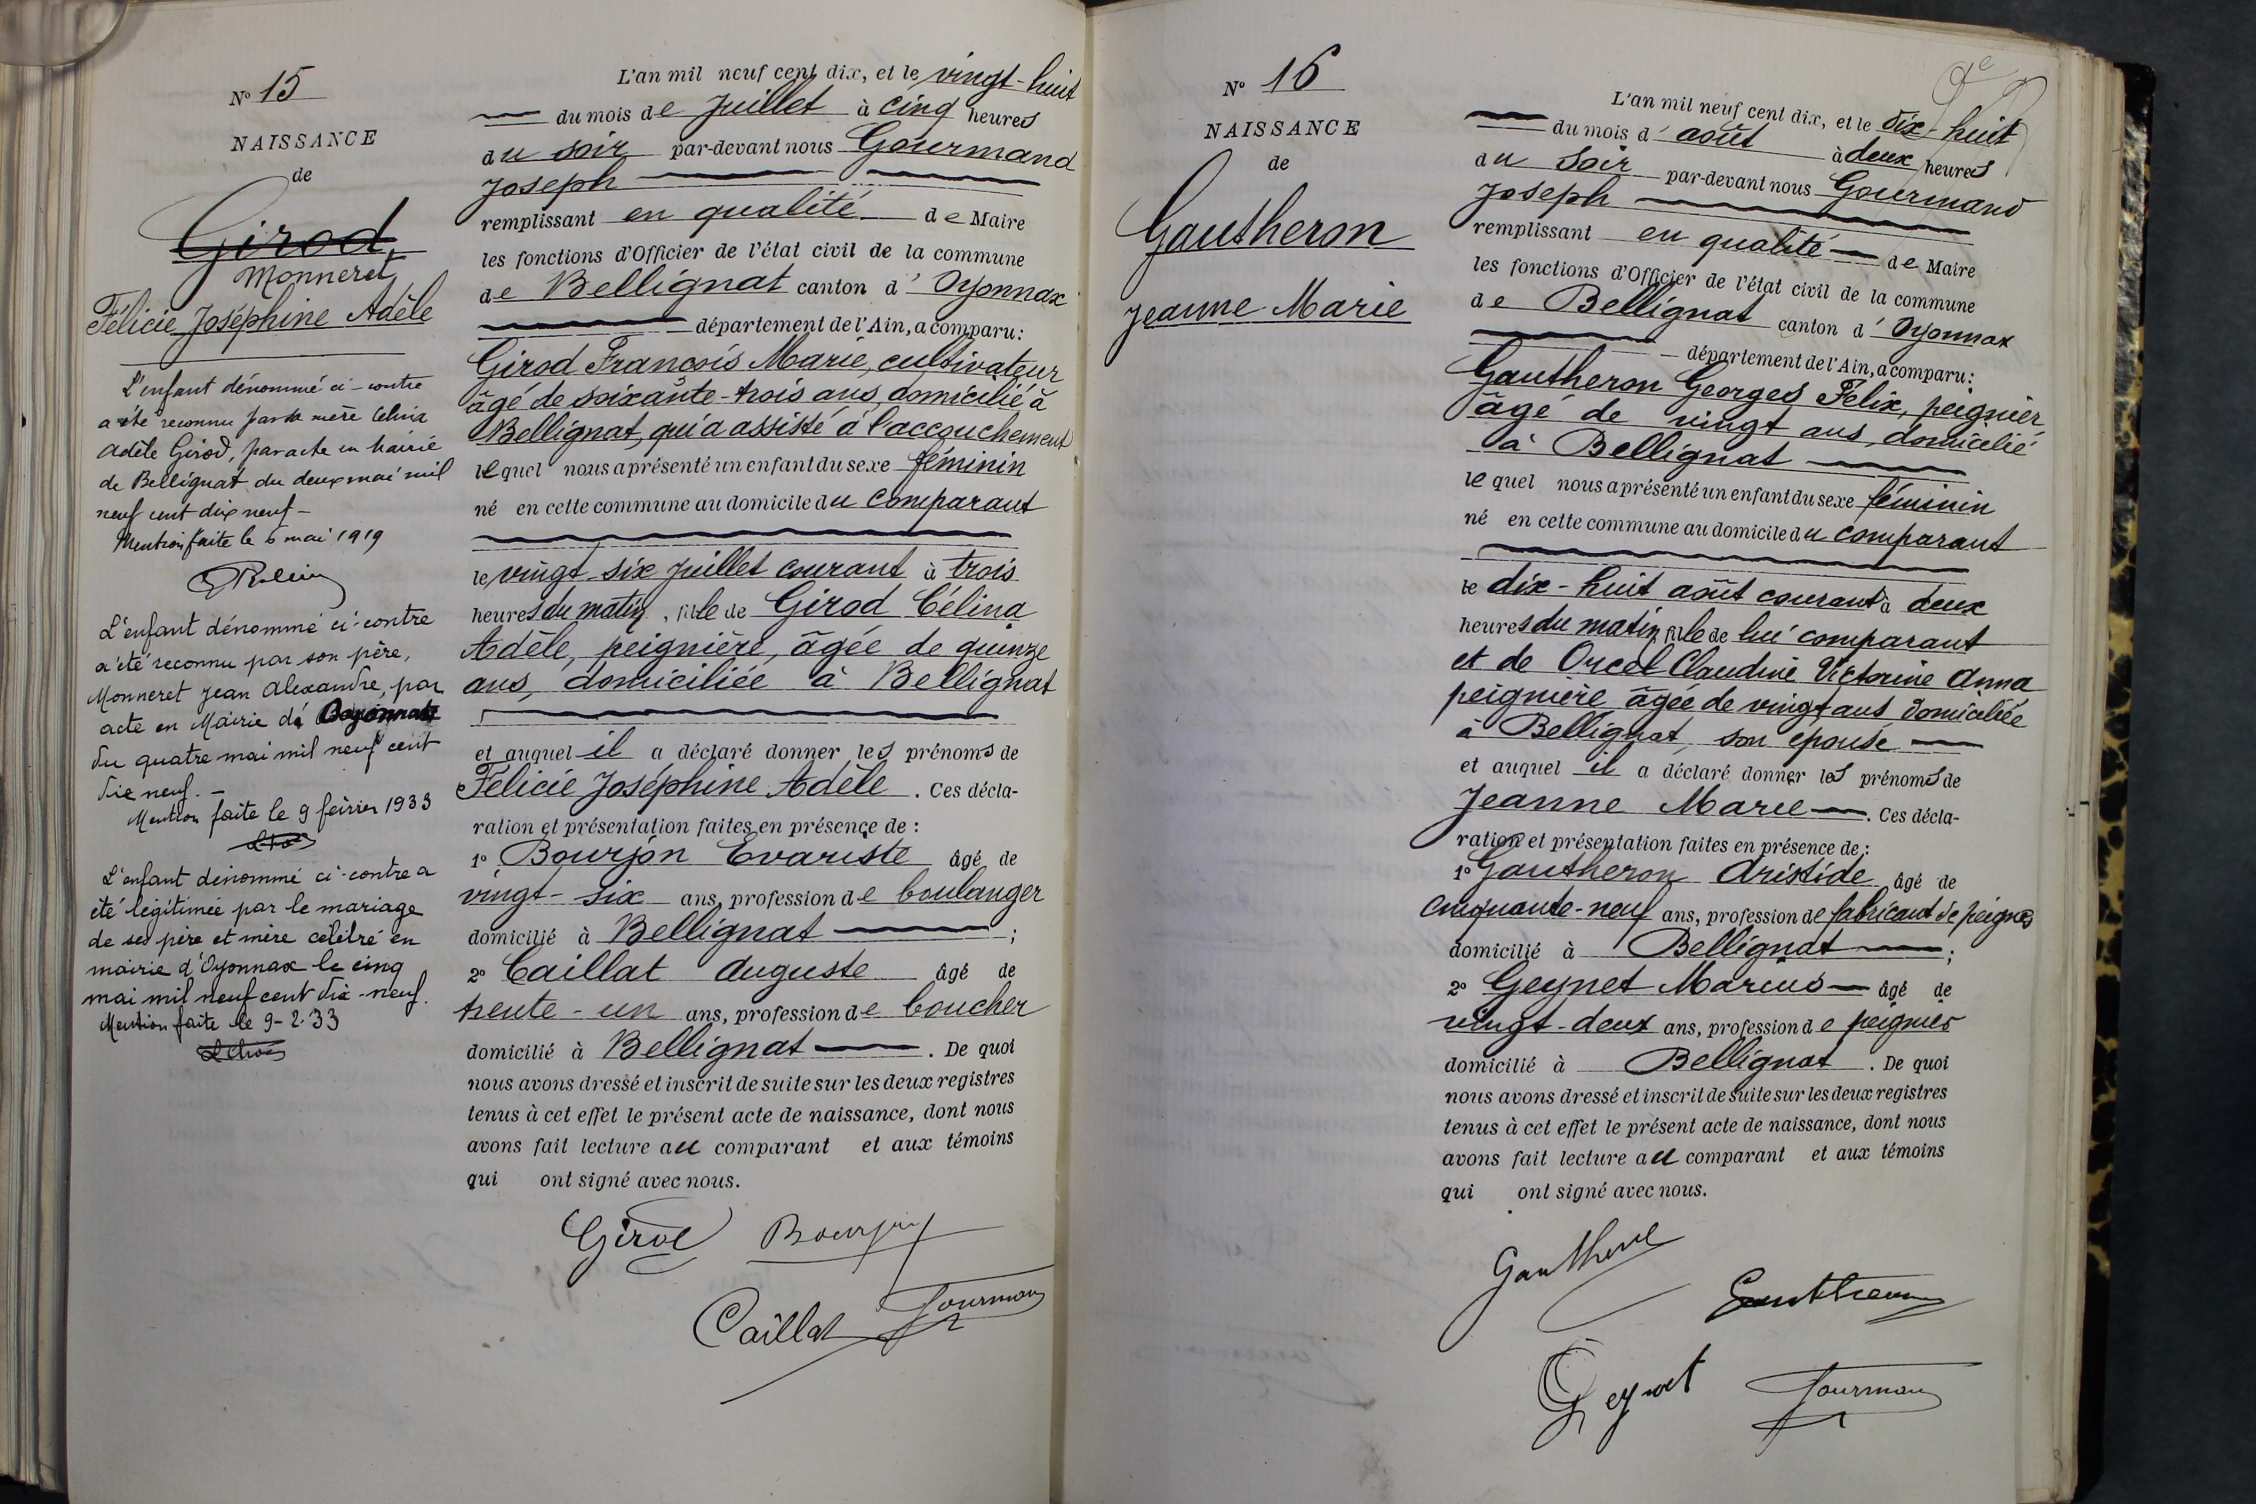 N° 15
NAISSANCE
de
Girod,
Monneret
Félicie Joséphine Adèle
L'enfant dénommé ci-contre
a été reconnu par sa mère Célina
Adèle Girod, par acte en mairie
de Bellignat du deux mai mil
neuf cent dix neuf -
Mention faite le 6 mai 1919
L'enfant dénommé ci-contre
a été reconnu par son père,
Monneret Jean Alexandre, par
acte en Mairie d'Oyonnax
du quatre mai mil neuf cent
dix neuf. -
Mention faite le 9 février 1933
L'enfant dénommé ci-contre a
été légitimée par le mariage
de ses père et mère célébré en
mairie d'Oyonnax le cinq
mai mil neuf cent dix-neuf.
Mention faite le 9-2-33
L'an mil neuf cent dix, et le vingt-huit
du mois de Juillet à cinq heures
du soir par-devant nous Gourmand
Joseph
remplissant en qualité de Maire
les fonctions d'Officier de l'état civil de la commune
de Bellignat canton d'Oyonnax
département de l'Ain, a comparu:
Girod François Marie, cultivateur
âgé de soixante-trois ans, domicilié à
Bellignat, qui a assisté à l'accouchement
lequel nous a présenté un enfant du sexe féminin
né en cette commune au domicile du comparant
le vingt-six Juillet courant à trois
heures du matin, fille de Girod Célina
Adèle, peignière, âgée de quinze
ans, domiciliée à Bellignat
et auquel il a déclaré donner les prénoms de
Félicie Joséphine Adèle. Ces décla-
ration et présentation faites en présence de :
1° Bourjon Evariste âgé de
vingt-six ans, profession de boulanger
domicilié à Bellignat ;
2° Caillat Auguste âgé de
trente-un ans, profession de boucher
domicilié à Bellignat. De quoi
nous avons dressé et inscrit de suite sur les deux registres
tenus à cet effet le présent acte de naissance, dont nous
avons fait lecture au comparant et aux témoins
qui ont signé avec nous.
Girod Bourjon
Caillat Gourmand
N° 16
NAISSANCE
de
Gautheron
Jeanne Marie
L'an mil neuf cent dix, et le dix-huit
du mois d'août à deux heures
du soir par-devant nous Gourmand
Joseph
remplissant en qualité de Maire
les fonctions d'Officier de l'état civil de la commune
de Bellignat canton d'Oyonnax
département de l'Ain, a comparu:
Gautheron Georges Felix, peignier,
âgé de vingt ans, domicilié
à Bellignat
lequel nous a présenté un enfant du sexe féminin
né en cette commune au domicile du comparant
le dix-huit août courant à deux
heures du matin, fille de lui comparant
et de Orcel Claudine Victorine Anna
peignière âgée de vingt ans domiciliée
à Bellignat, son epouse
et auquel il a déclaré donner les prénoms de
Jeanne Marie. Ces décla-
ration et présentation faites en présence de :
1° Gautheron Aristide âgé de
cinquante-neuf ans, profession de fabricant de peignes
domicilié à Bellignat ;
2° Geynet Marius âgé de
vingt-deux ans, profession de peignier
domicilié à Bellignat. De quoi
nous avons dressé et inscrit de suite sur les deux registres
tenus à cet effet le présent acte de naissance, dont nous
avons fait lecture au comparant et aux témoins
qui ont signé avec nous.
Gautheron
Gautheron
Geynet Gourmand